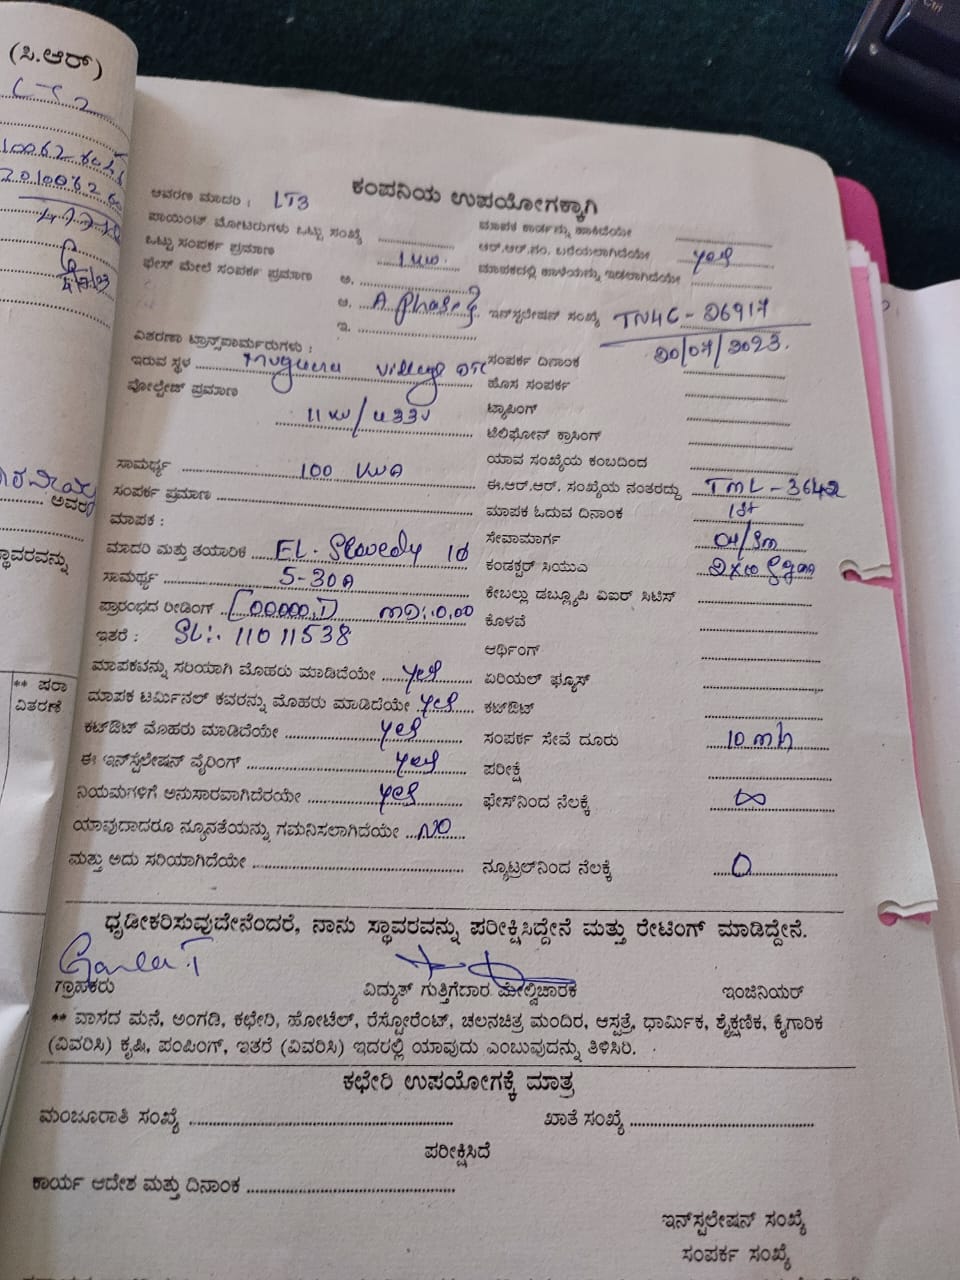 (ಸಿ.ಆರ್)
LT2
ಕಂಪನಿಯ ಉಪಯೋಗಕ್ಕಾಗಿ
ಆವರಣ ಮಾದರಿ : LT3
ಪಾಯಿಂಟ್ ಮೋಟರುಗಳು ಒಟ್ಟು ಸಂಖ್ಯೆ
ಒಟ್ಟು ಸಂಪರ್ಕ ಪ್ರಮಾಣ 1 KW.
ಫೇಸ್ ಮೇಲೆ ಸಂಪರ್ಕ ಪ್ರಮಾಣ ಅ.
ಆ. A phase
ಇ.
ವಿತರಣಾ ಟ್ರಾನ್ಸ್‌ಫಾರ್ಮರುಗಳು :
ಇರುವ ಸ್ಥಳ village
ವೋಲ್ಟೇಜ್ ಪ್ರಮಾಣ
11 KV / 433V
ಸಾಮರ್ಥ್ಯ 100 KVA
ಸಂಪರ್ಕ ಪ್ರಮಾಣ
ಮಾಪಕ :
ಮಾದರಿ ಮತ್ತು ತಯಾರಿಕ
ಸಾಮರ್ಥ್ಯ 5-30A
ಪ್ರಾರಂಭದ ರೀಡಿಂಗ್ [00000.1] MD:.0.00
ಇತರೆ : SL:. 11011538
ಮಾಪಕವನ್ನು ಸರಿಯಾಗಿ ಮೊಹರು ಮಾಡಿದೆಯೇ yes
ಮಾಪಕ ಟರ್ಮಿನಲ್ ಕವರನ್ನು ಮೊಹರು ಮಾಡಿದೆಯೇ yes
ಕಟ್‌ಔಟ್ ಮೊಹರು ಮಾಡಿದೆಯೇ yes
ಈ ಇನ್‌ಸ್ಟಲೇಷನ್ ವೈರಿಂಗ್ yes
ನಿಯಮಗಳಿಗೆ ಅನುಸಾರವಾಗಿದೆರಯೇ yes
ಯಾವುದಾದರೂ ನ್ಯೂನತೆಯನ್ನು ಗಮನಿಸಲಾಗಿದೆಯೇ NO
ಮತ್ತು ಅದು ಸರಿಯಾಗಿದೆಯೇ
ಮಾಪಕ ಕಾರ್ಡನ್ನು ಹಾಕಿದೆಯೇ
ಆರ್.ಆರ್.ನಂ. ಬರೆಯಲಾಗಿದೆಯೇ yes
ಮಾಪಕದಲ್ಲಿ ಹಾಳೆಯನ್ನು ಇಡಲಾಗಿದೆಯೇ
ಇನ್‌ಸ್ಟಲೇಷನ್ ಸಂಖ್ಯೆ TN4C - 26917
ಸಂಪರ್ಕ ದಿನಾಂಕ 20/07/2023.
ಹೊಸ ಸಂಪರ್ಕ
ಟ್ಯಾಪಿಂಗ್
ಟೆಲಿಫೋನ್ ಕ್ರಾಸಿಂಗ್
ಯಾವ ಸಂಖ್ಯೆಯ ಕಂಬದಿಂದ
ಈ.ಆರ್.ಆರ್. ಸಂಖ್ಯೆಯ ನಂತರದ್ದು TML - 3642
ಮಾಪಕ ಓದುವ ದಿನಾಂಕ 1st
ಸೇವಾಮಾರ್ಗ OH/SM
ಕಂಡಕ್ಟರ್ ಸಿಯುಎ
ಕೇಬಲ್ಲು ಡಬ್ಲ್ಯೂಪಿ ವಿಐರ್ ಸಿಟಿಸ್
ಕೊಳವೆ
ಆರ್ಥಿಂಗ್
ಏರಿಯಲ್ ಫ್ಯೂಸ್
ಕಟ್‌ಔಟ್
ಸಂಪರ್ಕ ಸೇವೆ ದೂರು 10 mh
ಪರೀಕ್ಷೆ
ಫೇಸ್‌ನಿಂದ ನೆಲಕ್ಕೆ ∞
ನ್ಯೂಟ್ರಲ್‌ನಿಂದ ನೆಲಕ್ಕೆ 0
** ಷರಾ
ವಿತರಣೆ
ಧೃಡೀಕರಿಸುವುದೇನೆಂದರೆ, ನಾನು ಸ್ಥಾವರವನ್ನು ಪರೀಕ್ಷಿಸಿದ್ದೇನೆ ಮತ್ತು ರೇಟಿಂಗ್ ಮಾಡಿದ್ದೇನೆ.
ಗ್ರಾಹಕರು ವಿದ್ಯುತ್ ಗುತ್ತಿಗೆದಾರ ಮೇಲ್ವಿಚಾರಕ ಇಂಜಿನಿಯರ್
** ವಾಸದ ಮನೆ, ಅಂಗಡಿ, ಕಛೇರಿ, ಹೋಟೆಲ್, ರೆಸ್ಟೋರೆಂಟ್, ಚಲನಚಿತ್ರ ಮಂದಿರ, ಆಸ್ಪತ್ರೆ, ಧಾರ್ಮಿಕ, ಶೈಕ್ಷಣಿಕ, ಕೈಗಾರಿಕ
(ವಿವರಿಸಿ) ಕೃಷಿ, ಪಂಪಿಂಗ್, ಇತರೆ (ವಿವರಿಸಿ) ಇದರಲ್ಲಿ ಯಾವುದು ಎಂಬುವುದನ್ನು ತಿಳಿಸಿರಿ.
ಕಛೇರಿ ಉಪಯೋಗಕ್ಕೆ ಮಾತ್ರ
ಮಂಜೂರಾತಿ ಸಂಖ್ಯೆ ಖಾತೆ ಸಂಖ್ಯೆ
ಪರೀಕ್ಷಿಸಿದೆ
ಕಾರ್ಯ ಆದೇಶ ಮತ್ತು ದಿನಾಂಕ
ಇನ್‌ಸ್ಟಲೇಷನ್ ಸಂಖ್ಯೆ
ಸಂಪರ್ಕ ಸಂಖ್ಯೆ